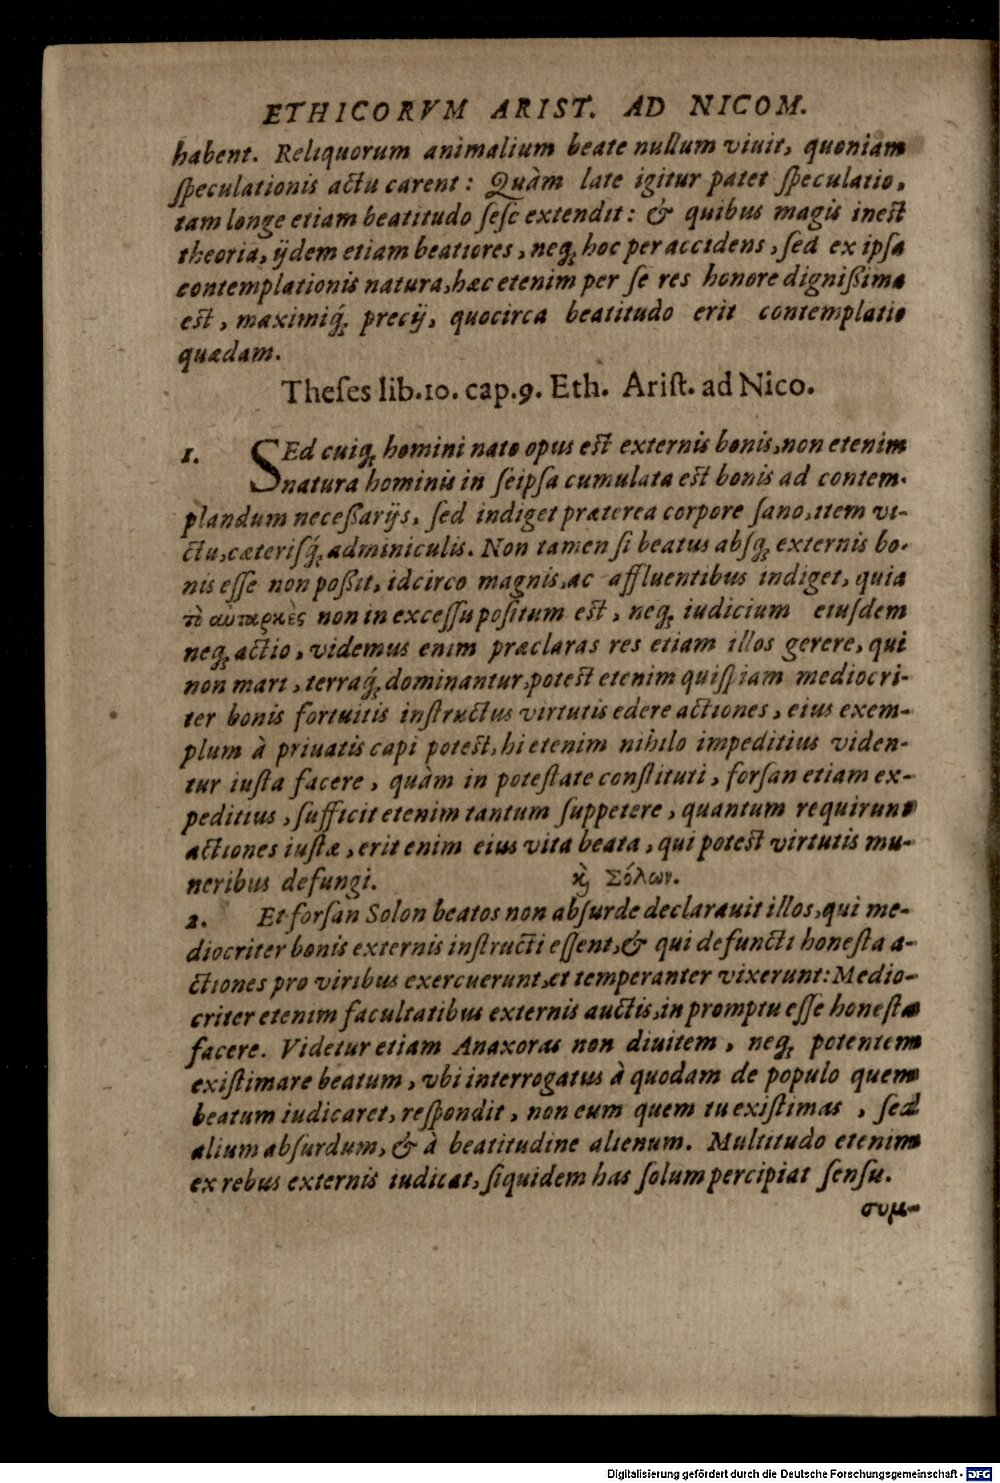 ETHICORVM ARIST. AD NICOM.
habent. Reliquorum animalium beate nullum viuit, quoniam
ſpeculationis actu carent: Quàm late igitur patet ſpeculatio,
tam longe etiam beatitudo ſeſe extendit: & quibus magis ineſt
theoria, ijdem etiam beatiores, neq; hoc per accidens, ſed ex ipſa
contemplationis natura, hæc etenim per ſe res honore dignißima
eſt, maximiq́; precij, quocirca beatitudo erit contemplatio
quædam.
Theſes lib.10. cap.9. Eth. Ariſt. ad Nico.
1. SEd cuiq; homini nato opus eſt externis bonis, non etenim
natura hominis in ſeipſa cumulata eſt bonis ad contem-
plandum neceßarijs, ſed indiget præterea corpore ſano, item vi-
ctu, cæteriſq́; adminiculis. Non tamen ſi beatus abſq; externis bo-
nis eſſe non poßit, idcirco magnis, ac affluentibus indiget, quia
τὸ αὐταρκὲς non in exceſſu poſitum eſt, neq; iudicium eiuſdem
neq; actio, videmus enim præclaras res etiam illos gerere, qui
non mari, terraq́; dominantur, poteſt etenim quiſpiam mediocri-
ter bonis fortuitis inſtructus virtutis edere actiones, eius exem-
plum à priuatis capi poteſt, hi etenim nihilo impeditius viden-
tur iuſta facere, quàm in poteſtate conſtituti, forſan etiam ex-
peditius, ſufficit etenim tantum ſuppetere, quantum requirunt
actiones iuſtæ, erit enim eius vita beata, qui poteſt virtutis mu-
neribus defungi. κ̀ Σόλων.
2. Et forſan Solon beatos non abſurde declarauit illos, qui me-
diocriter bonis externis inſtructi eſſent, & qui defuncti honeſta a-
ctiones pro viribus exercuerunt, et temperanter vixerunt: Medio-
criter etenim facultatibus externis auctis, in promptu eſſe honeſta
facere. Videtur etiam Anaxoras non diuitem, neq; potentem
exiſtimare beatum, vbi interrogatus à quodam de populo quem
beatum iudicaret, reſpondit, non eum quem tu exiſtimas, ſed
alium abſurdum, & à beatitudine alienum. Multitudo etenim
ex rebus externis iudicat, ſiquidem has ſolum percipiat ſenſu.
συμ-
Digitalisierung gefördert durch die Deutsche Forschungsgemeinschaft - DFG